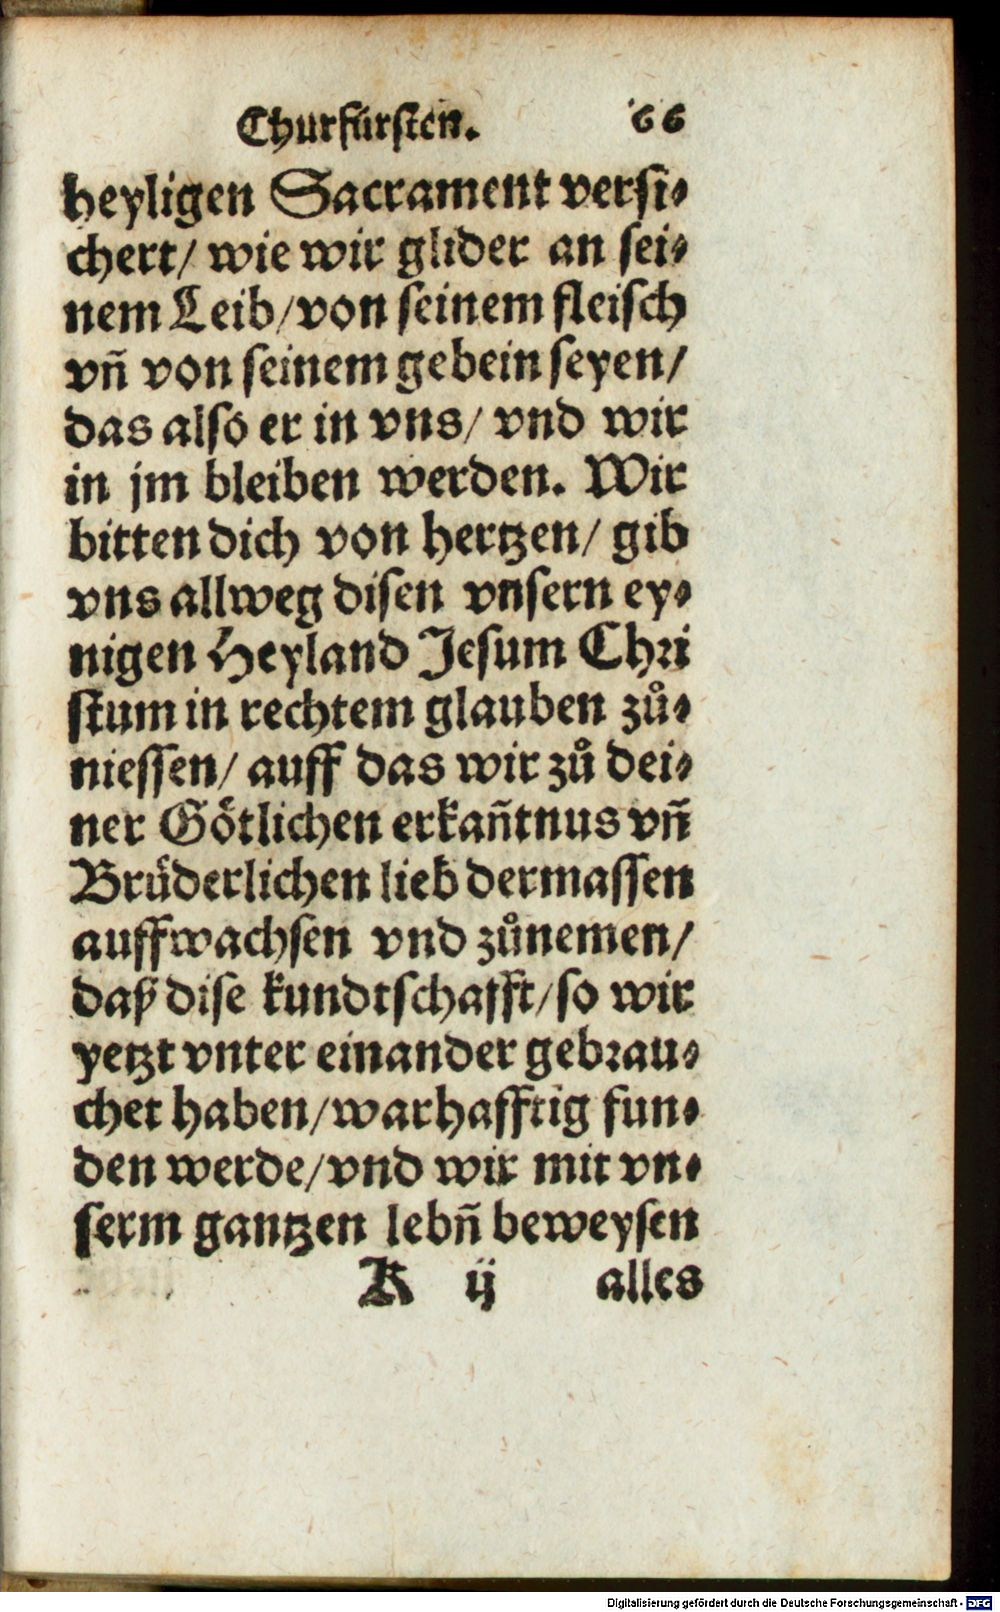 Churfürsten. 66
heyligen Sacrament versi⸗
chert/ wie wir glider an sei⸗
nem Leib/von seinem fleisch
vñ von seinem gebein seyen/
das also er in vns/ vnd wir
in jm bleiben werden. Wir
bitten dich von hertzen/ gib
vns allweg disen vnsern ey⸗
nigen Heyland Jesum Chri
stum in rechtem glauben zů⸗
niessen/ auff das wir zů dei⸗
ner Götlichen erkañtnus vñ
Brüderlichen lieb dermassen
auffwachsen vnd zůnemen/
daß dise kundtschafft/so wir
yetzt vnter einander gebrau⸗
chet haben/warhafftig fun⸗
den werde/vnd wir mit vn⸗
serm gantzen lebñ beweysen
K ij alles
Digitalisierung gefördert durch die Deutsche Forschungsgemeinschaft - DFG